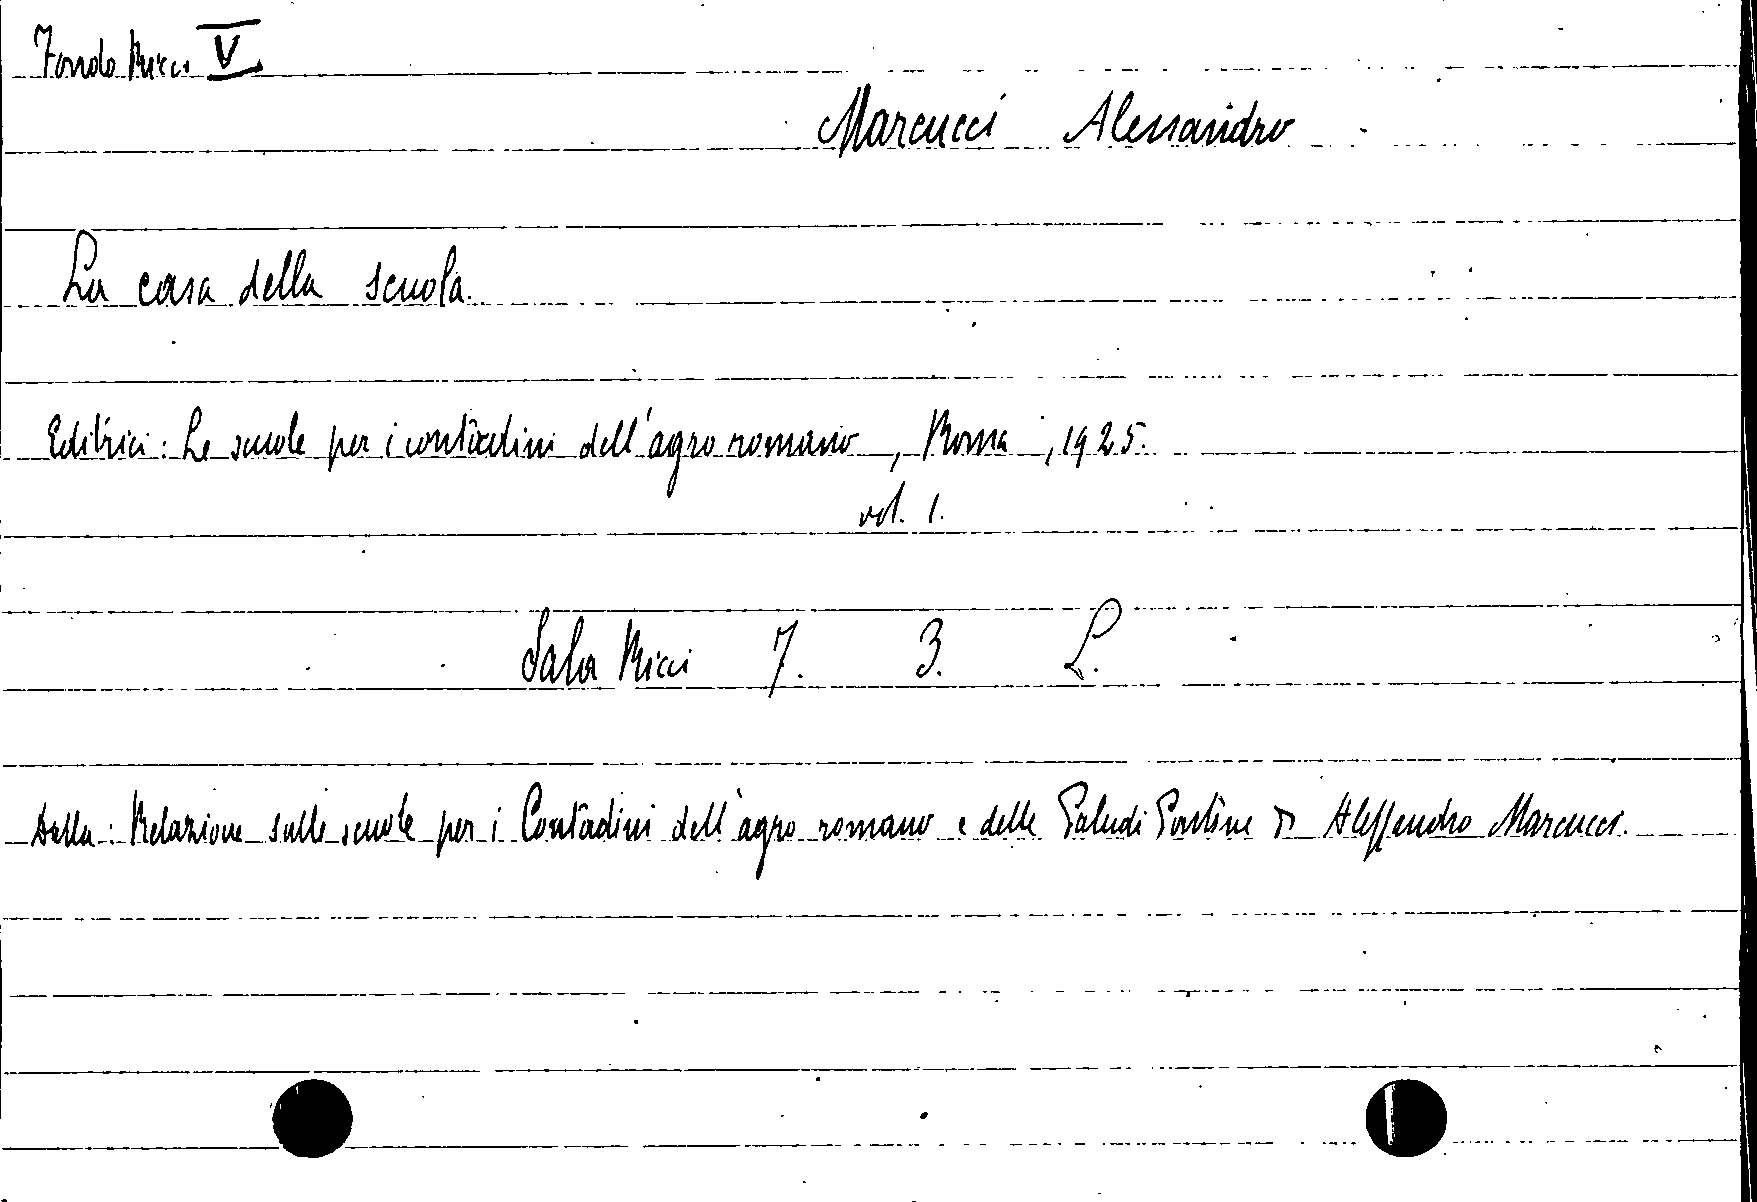 Fondo Ricci V
Marcucci Alessandro
La casa della scuola.
Editrici: Le scuole per i contadini dell'agro romano, Roma, 1925.
vol. 1.
Sala Ricci 7. 3. L.
Dalla: Relazione sulle scuole per i Contadini dell'agro romano e delle Paludi Pontine di Alessandro Marcucci.